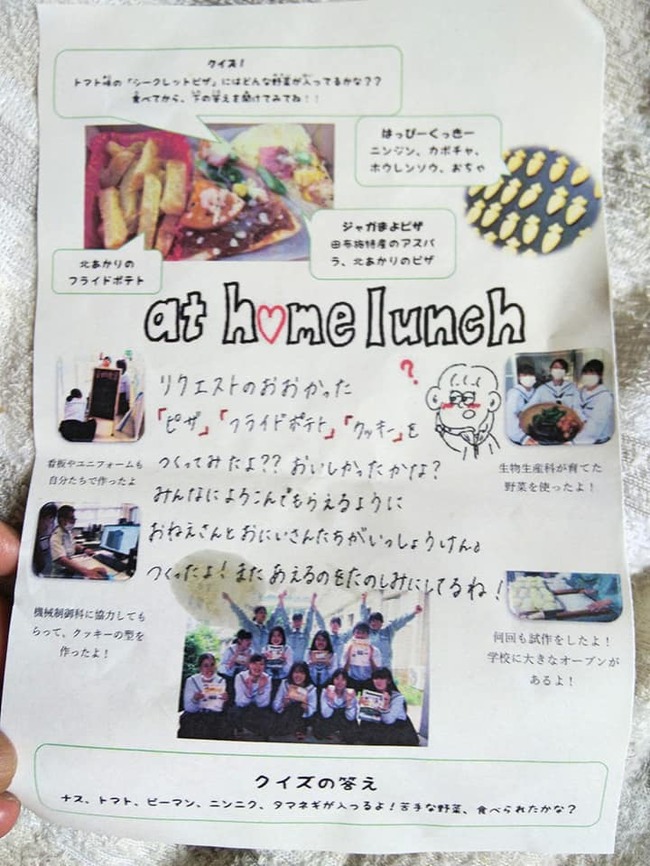 クイズ！
トマト味の「シークレットピザ」にはどんな野菜が入ってるかな？？
食べてから、下の答えを開けてみてね！！
はっぴーくっきー
ニンジン、カボチャ、
ホウレンソウ、おちゃ
ジャガまよピザ
田布施特産のアスパ
ラ、北あかりのピザ
北あかりの
フライドポテト
at home lunch
?
リクエストのおおかった
「ピザ」「フライドポテト」「クッキー」を
つくってみたよ?? おいしかったかな?
みんなによろこんでもらえるように
おねえさんとおにいさんたちがいっしょうけん。
つくったよ! また あえるのをたのしみにしてるね!
看板やユニフォームも
自分たちで作ったよ
生物生産科が育てた
野菜を使ったよ！
機械制御科に協力しても
らって、クッキーの型を
作ったよ！
何回も試作をしたよ！
学校に大きなオーブンが
あるよ！
クイズの答え
ナス、トマト、ピーマン、ニンニク、タマネギが入ってるよ！苦手な野菜、食べられたかな？